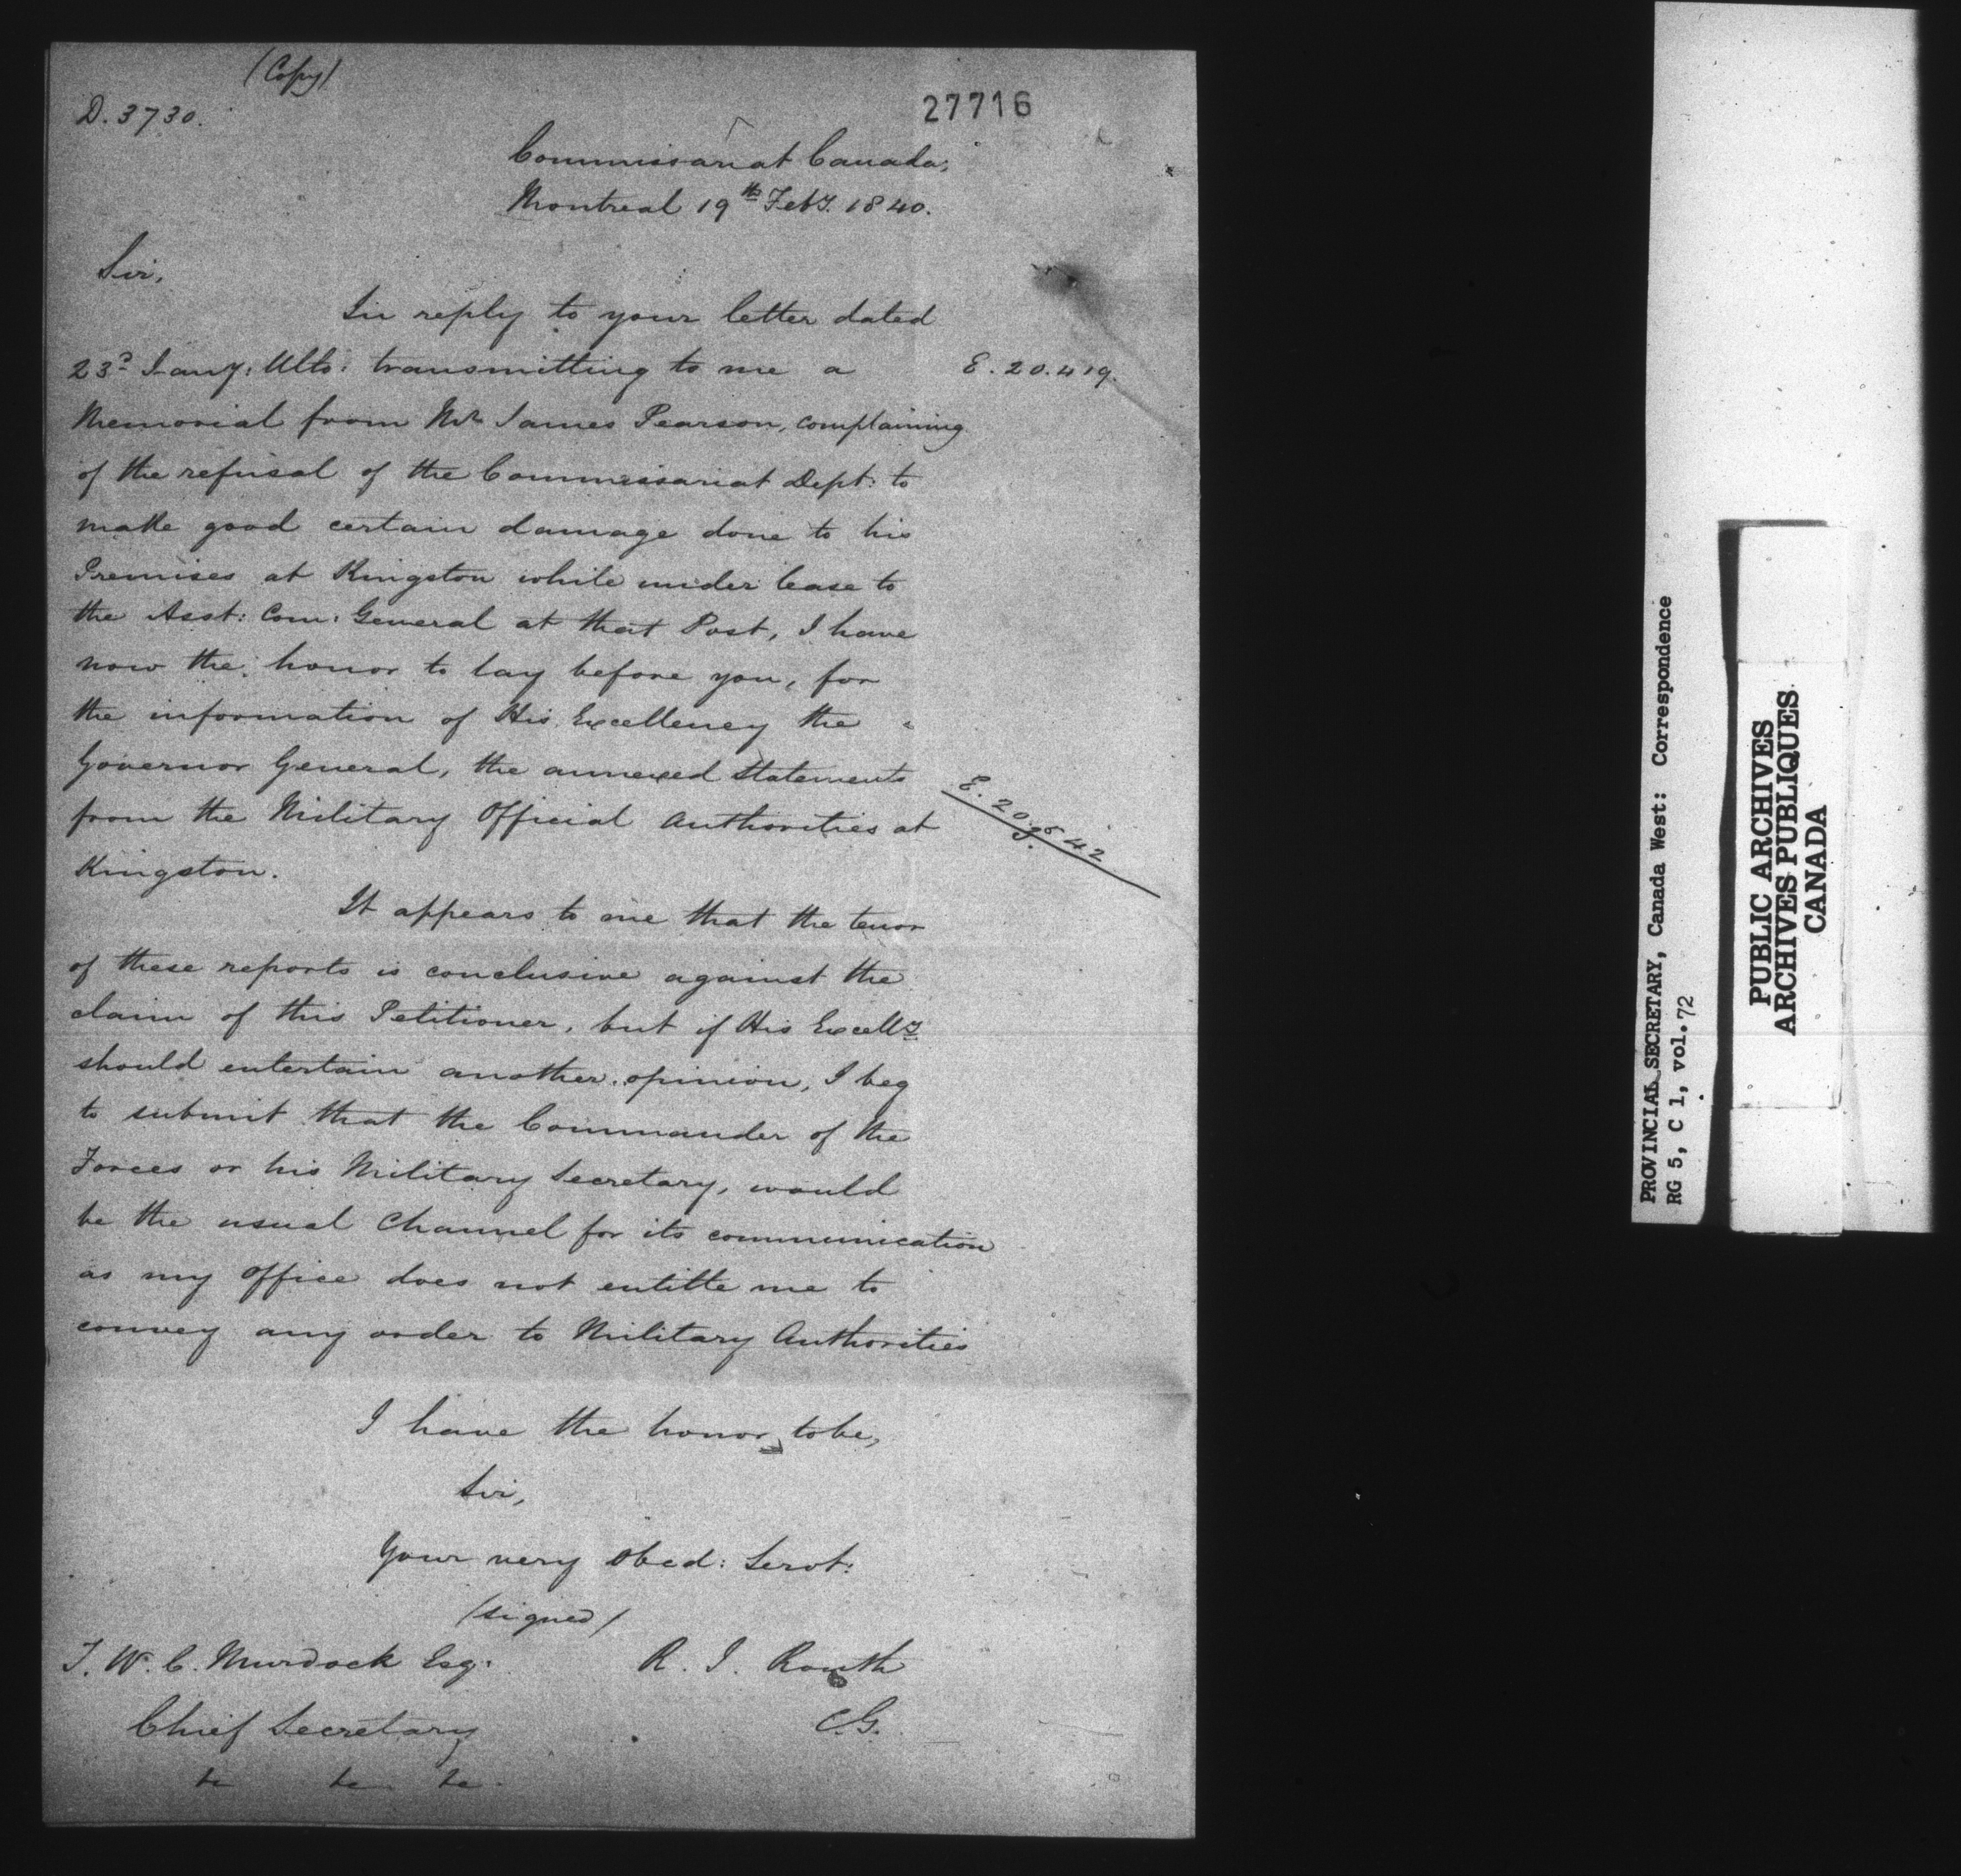 (Copy)
D. 3730.
27716
Commissariat Canada,
Montreal 19th Feby. 1840.
Sir,
In reply to your letter dated
23d Jany: Ulto: transmitting to me a
E. 20.419.
Memorial from Mr James Pearson, complaining
of the refusal of the Commissariat Dept: to
make good certain damage done to his
Premises at Kingston while under lease to
the Asst: Com: General at that Post, I have
now the honor to lay before you, for
the information of His Excellency the
Governor General, the annexed Statements
from the Military Official Authorities at
Kingston.
It appears to me that the tenor
of these reports is conclusive against the
claim of this Petitioner, but if His Excelly
should entertain another opinion, I beg
to submit that the Commander of the
Forces or his Military Secretary, would
be the usual Channel for its communication
as my office does not entitle me to
convey any order to Military Authorities
I have the honor to be,
Sir,
Your very Obed: Servt:
(signed)
T. W. C. Murdock Esq:
R. I. Routh
Chief Secretary
C.G.
&c &c &c
PROVINCIAL SECRETARY, Canada West: Correspondence
RG 5, C 1, vol. 72
PUBLIC ARCHIVES
ARCHIVES PUBLIQUES
CANADA